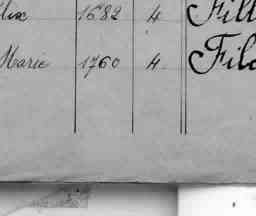 1682 4 Fill
Marie 1760 4 Filo